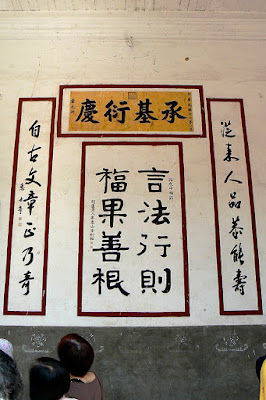 承基衍慶
從來人品恭能壽
言法行則
福果善根
自古文章正乃奇